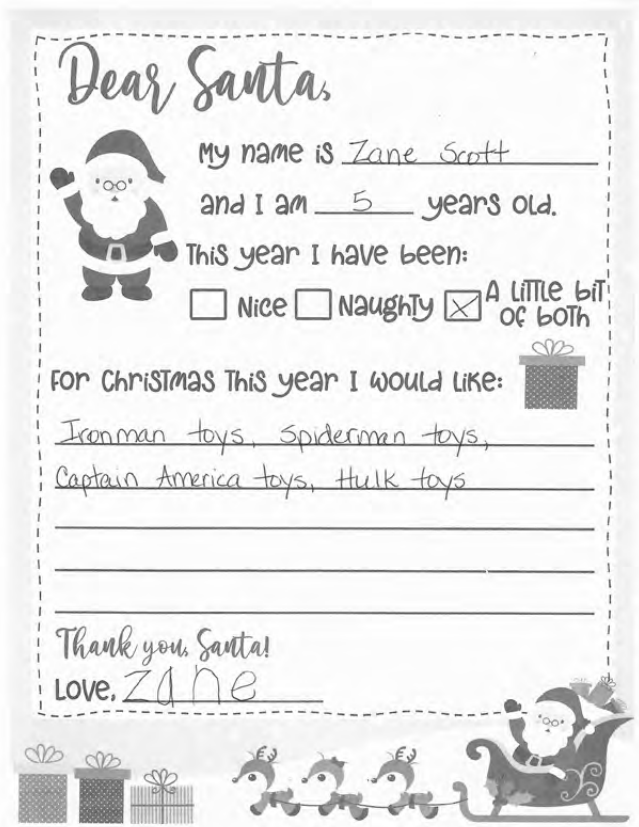 Dear Santa,
My name is Zane Scott
and I am 5 years old.
This year I have been:
Nice Naughty A little bit of both
For Christmas this year I would like:
Ironman toys, Spiderman toys,
Captain America toys, Hulk toys
Thank you, Santa!
Love, Zane